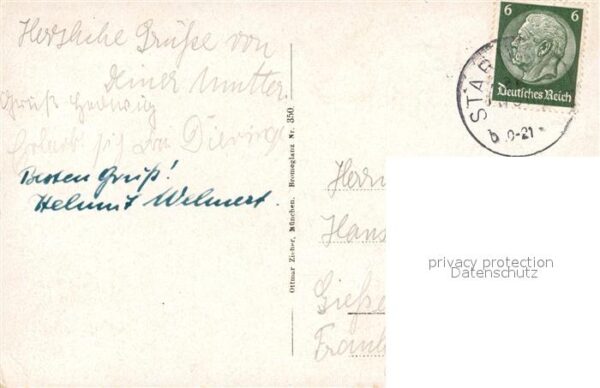 Herzliche Grüße von
Deiner Mutter.
Gruß Hedwig
Besten Gruß!
Helmut
Ottmar Zieher, München. Bromeglanz Nr. 350
6 6
Deutsches Reich
STAR
b 0-21
Herrn
Hans
Gieße
Frank
privacy protection
Datenschutz